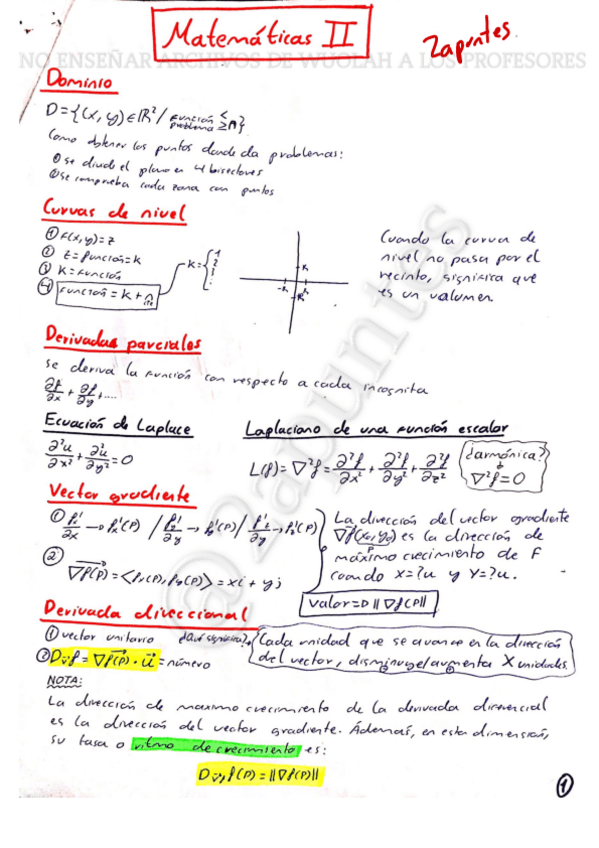 Matemáticas II
2apuntes
NO ENSEÑAR ARCHIVOS DE WUOLAH A LOS PROFESORES
Dominio
D={(x, y)∈ℝ²/ función problema ≤ ≥ n}
Como obtener los puntos donde da problemas:
① se divide el plano en 4 bisectores
② se comprueba cada zona con puntos
Curvas de nivel
① F(x,y)=z
② z=función=k
③ K=función
④ Función=k+n
K={1 2 3
Cuando la curva de
nivel no pasa por el
recinto, significa que
es un valumen.
Derivadas parciales
se deriva la función con respecto a cada incognita
∂f/∂x + ∂f/∂y + ....
Ecuación de Laplace
∂²u/∂x² + ∂²u/∂y² = 0
Laplaciano de una función escalar
L(f) = ∇²f = ∂²f/∂x² + ∂²f/∂y² + ∂²f/∂z²
¿armónica?
∇²f=0
Vector gradiente
①
②
∇f(P)=<fx(P), fy(P)>=xi+yj
La dirección del vector gradiente
∇f(x₀,y₀) es la dirección de
máximo crecimiento de F
cuando x=?u y Y=?u.
Valor=D ||∇f(P)||
Derivada direccional
① vector unitario
¿Qué significa?
② Dᵤf = ∇f(P) · u = número
Cada unidad que se avance en la dirección
del vector, disminuye/aumenta X unidades.
NOTA:
La dirección de maximo crecimiento de la derivada
es la dirección del vector gradiente. Además, en esta dimensión,
su tasa o ritmo de crecimiento es:
Dᵤ, f(P) = ||∇f(P)||
1
@2apuntes